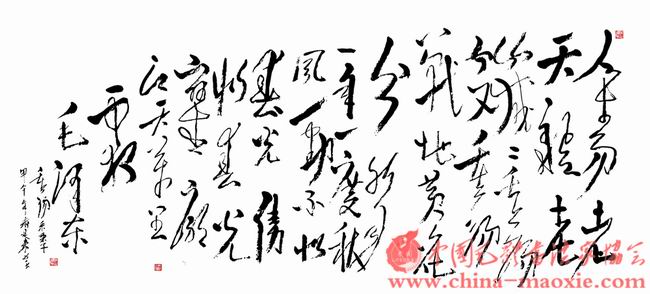 人生易老
天难老
岁岁重阳
今又重阳
战地黄花
分外香
一年一度秋
风劲不似
春光胜
似春光
寥廓
江天万里
霜
毛泽东
中国毛体书法家协会
www.china-maoxie.com